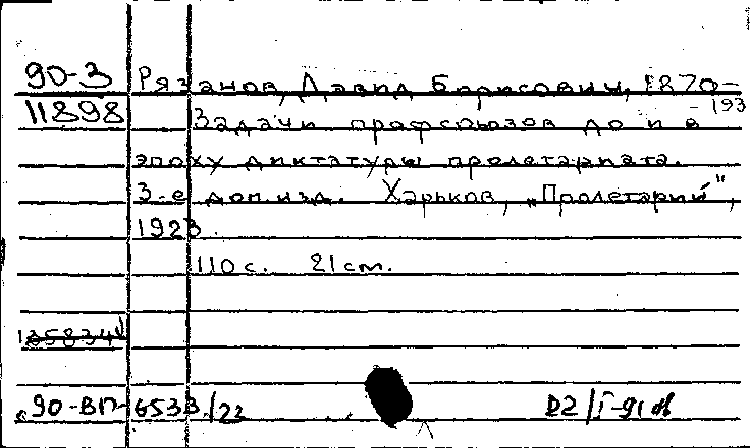 90-3 Рязанов, Давид Борисович, 1870-
11898 -193
Задачи профсоюзов до и в
эпоху диктатуры пролетариата.
3-е доп. изд. Харьков, „Пролетарий",
1923.
110 с. 21 см.
135834
90-ВП-6533/22 D2/I-91